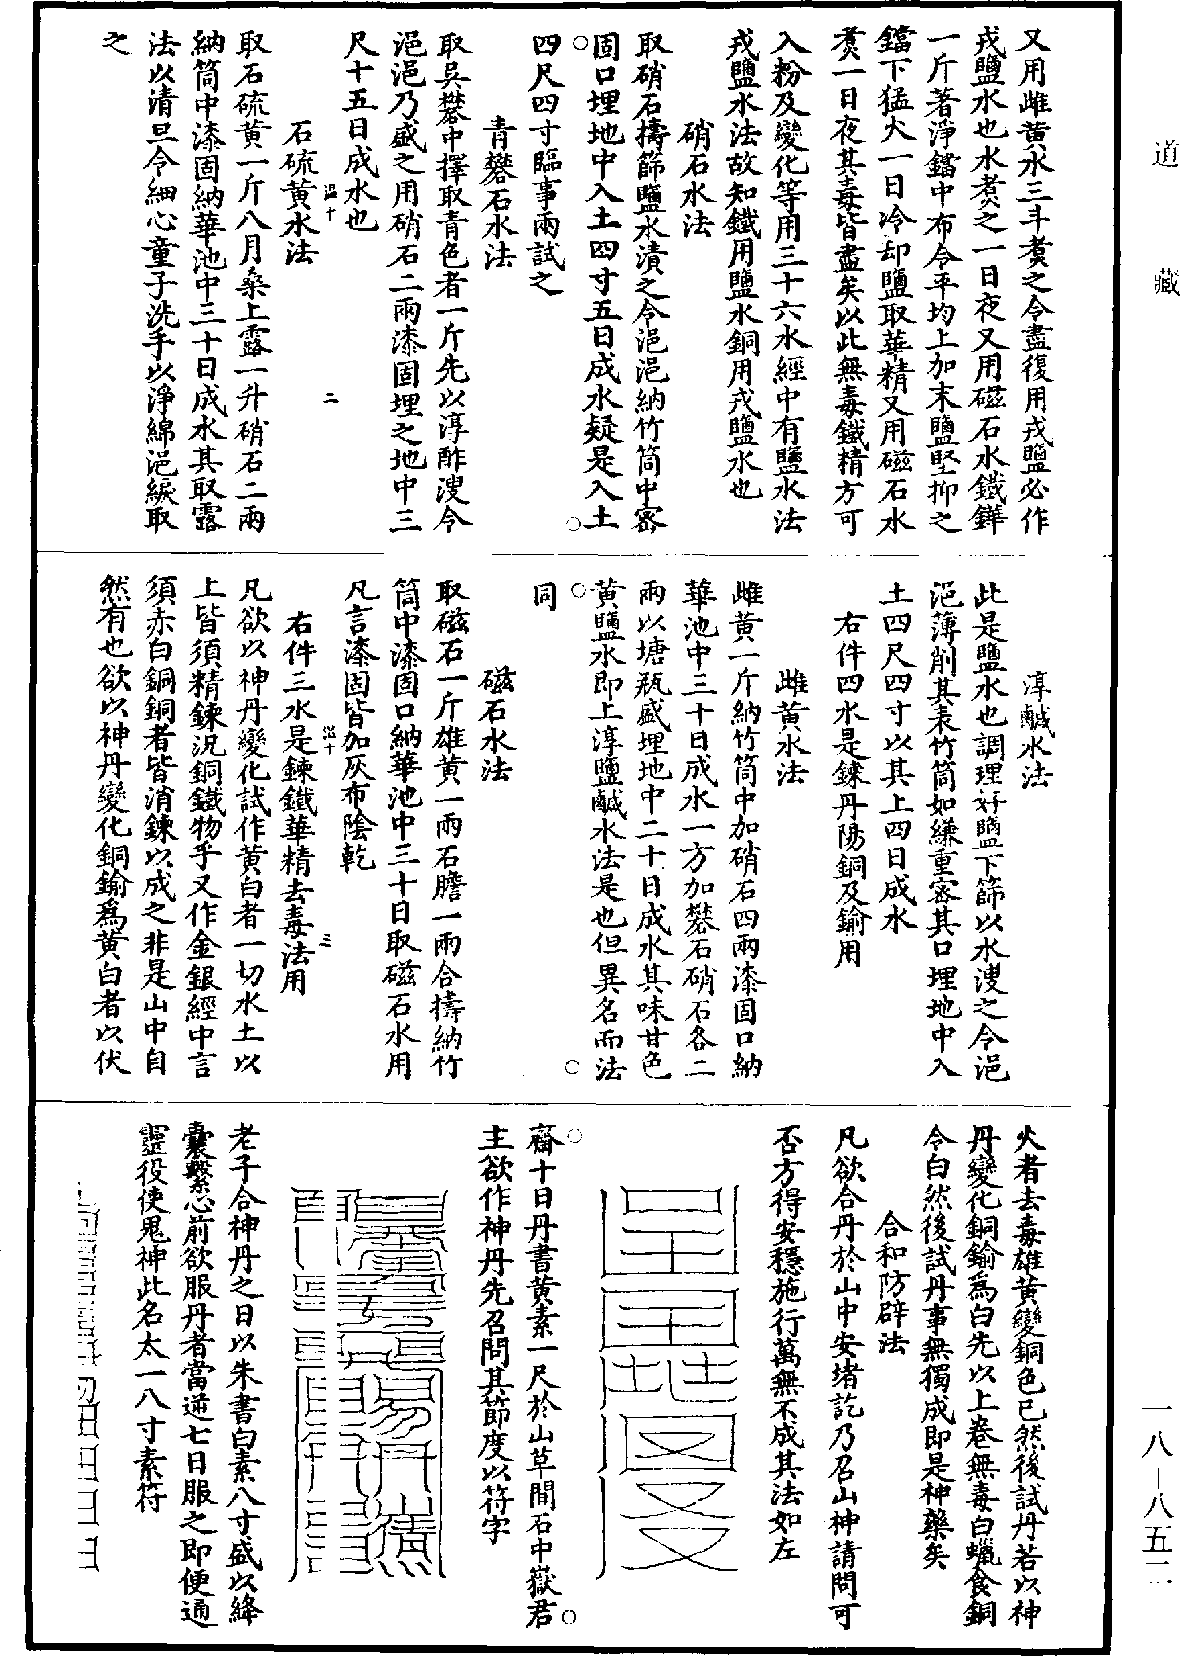 道藏
又用雌黃水三斗煑之令盡復用戎鹽必作
戎鹽水也水煑之一日夜又用磁石水鐵鏵
一斤著淨鐺中布令平均上加末鹽堅抑之
鐺下猛火一日冷却鹽取華精又用磁石水
煑一日夜其毒皆盡矣以此無毒鐵精方可
入粉及變化等用三十六水經中有鹽水法
戎鹽水法故知鐵用鹽水銅用戎鹽水也
硝石水法
取硝石擣篩鹽水漬之令浥浥納竹筒中密
固口埋地中入土四寸五日成水疑是入土
四尺四寸臨事兩試之
青礬石水法
取吳礬中擇取青色者一斤先以淳酢溲令
浥浥乃盛之用硝石二兩漆固埋之地中三
尺十五日成水也
二
石硫黃水法
取石硫黃一斤八月桑上露一升硝石二兩
納筒中漆固納華池中三十日成水其取露
法以清旦令細心童子洗手以淨綿浥緱取
之
淳鹹水法
此是鹽水也調理好鹽下篩以水溲之令浥
浥薄削其表竹筒如縑重密其口埋地中入
土四尺四寸以其上四日成水
右件四水是鍊丹陽銅及鍮用
雌黃水法
雌黃一斤納竹筒中加硝石四兩漆固口納
華池中三十日成水一方加礬石硝石各二
兩以塘瓶盛埋地中二十日成水其味甘色
黃鹽水即上淳鹽鹹水法是也但異名而法
同
磁石水法
取磁石一斤雄黃一兩石膽一兩合擣納竹
筒中漆固口納華池中三十日取磁石水用
凡言漆固皆加灰布陰乾
三
右件三水是鍊鐵華精去毒法用
凡欲以神丹變化試作黃白者一切水土以
上皆須精鍊況銅鐵物乎又作金銀經中言
須赤白銅銅者皆消鍊以成之非是山中自
然有也欲以神丹變化銅鍮爲黃白者以伏
火者去毒雄黃變銅色已然後試丹若以神
丹變化銅鍮爲白先以上卷無毒白蠟食銅
令白然後試丹事無獨成即是神藥矣
合和防辟法
凡欲合丹於山中安堵訖乃召山神請問可
否方得安穩施行萬無不成其法如左
齋十日丹書黃素一尺於山草間石中嶽君
主欲作神丹先召問其節度以符字
老子合神丹之日以朱書白素八寸盛以絳
囊繫心前欲服丹者當逆七日服之即便通
靈役使鬼神此名太一八寸素符
一八—八五二